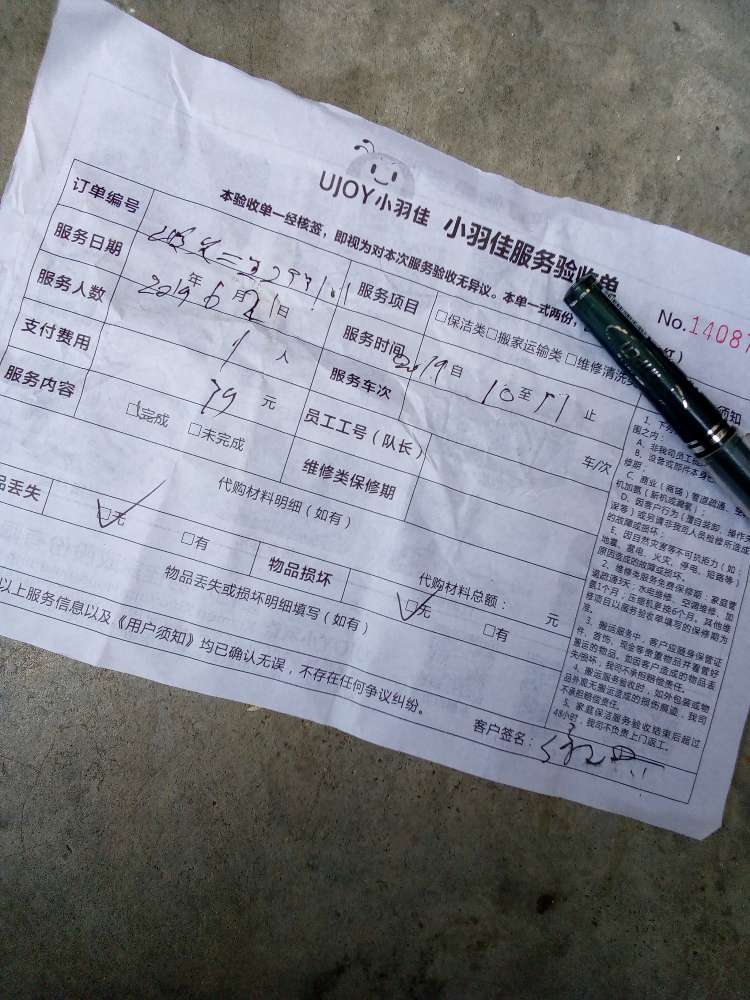 UJOY小羽佳 小羽佳服务验收单
本验收单一经核签，即视为对本次服务验收无异议。本单一式两份，
No.14087
订单编号
服务项目 □保洁类□搬家运输类□维修清洗类
服务日期 2019年6月21日
服务时间 自10至11止
服务人数 1人
服务车次 车/次
支付费用 79元
员工工号（队长）
服务内容 □完成 □未完成
维修类保修期
代购材料明细（如有）
代购材料总额： 元
品丢失 □无 □有
物品损坏 □无 □有
物品丢失或损坏明细填写（如有）
以上服务信息以及《用户须知》均已确认无误，不存在任何争议纠纷。
客户签名：
须知
1、下
围之内：
A、非我司员工
B、没替或部件本身
修期；
C、商业（商铺）管道疏通、空
机加氨（新机或漏氟）；
D、因客户行为（擅自装卸、操作失
误等）或另请非我司人员检修所造成
的故障或损坏；
E、因自然灾害等不可抗拒力（如：
地震、雷电、火灾、停电、短路等）
原因造成的故障或损坏。
2、维修类服务免费保修期：家庭管
道疏通3天；水电维修、空调维修、加
氨1个月；压缩机更换6个月。其他维
修项目以服务验收单填写的保修期为
准。
3、搬运服务中，客户应随身保管证
件、首饰、现金等贵重物品并看管好
搬运的物品。如因客户造成的物品丢
失/损坏，我司不承担赔偿责任。
4、搬运服务验收时，如外包装或物
品外观无搬运造成的损伤痕迹，我司
不承担赔偿责任。
5、家庭保洁服务验收结束后超过
48小时，我司不负责上门返工。